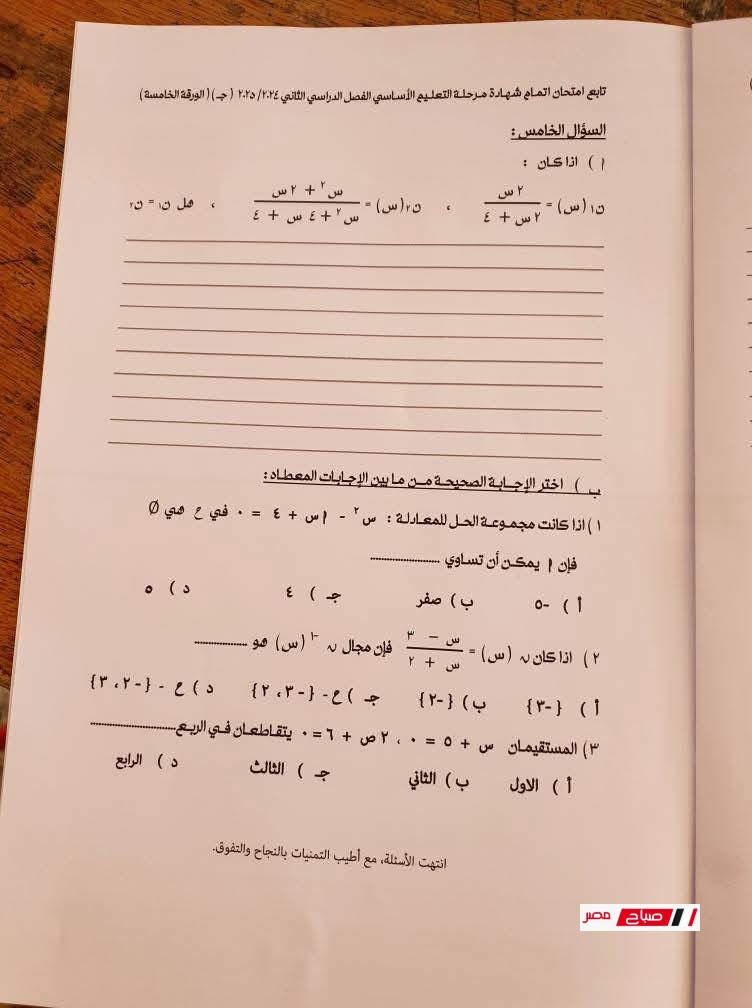 تابع امتحان اتمام شهادة مرحلة التعليم الأساسي الفصل الدراسي الثاني ٢٠٢٤/ ٢٠٢٥ ( جـ ) ( الورقة الخامسة )
السؤال الخامس :
ا ) اذا كان :
ن١ (س) = ٢ س / ٢ س + ٤ ، ن٢ (س) = س٢ + ٢ س / س٢ + ٤ س + ٤ ، هل ن١ = ن٢
ب ) اختر الإجابة الصحيحة من ما بين الإجابات المعطاه :
١ ) اذا كانت مجموعة الحل للمعادلة : س٢ - ا س + ٤ = ٠ في ح هي Ø
فإن ا يمكن أن تساوي ......................
أ ) -٥ ب ) صفر جـ ) ٤ د ) ٥
٢ ) اذا كان ن (س) = س - ٣ / س + ٢ فإن مجال ن-١ (س) هو ................
أ ) {-٣} ب ) {-٢} جـ ) ح - {-٣، ٢} د ) ح - {-٢، ٣}
٣ ) المستقيمان س + ٥ = ٠ ، ٢ ص + ٦ = ٠ يتقاطعان في الربع..........................
أ ) الاول ب ) الثاني جـ ) الثالث د ) الرابع
انتهت الأسئلة، مع أطيب التمنيات بالنجاح والتفوق.
صباح مصر